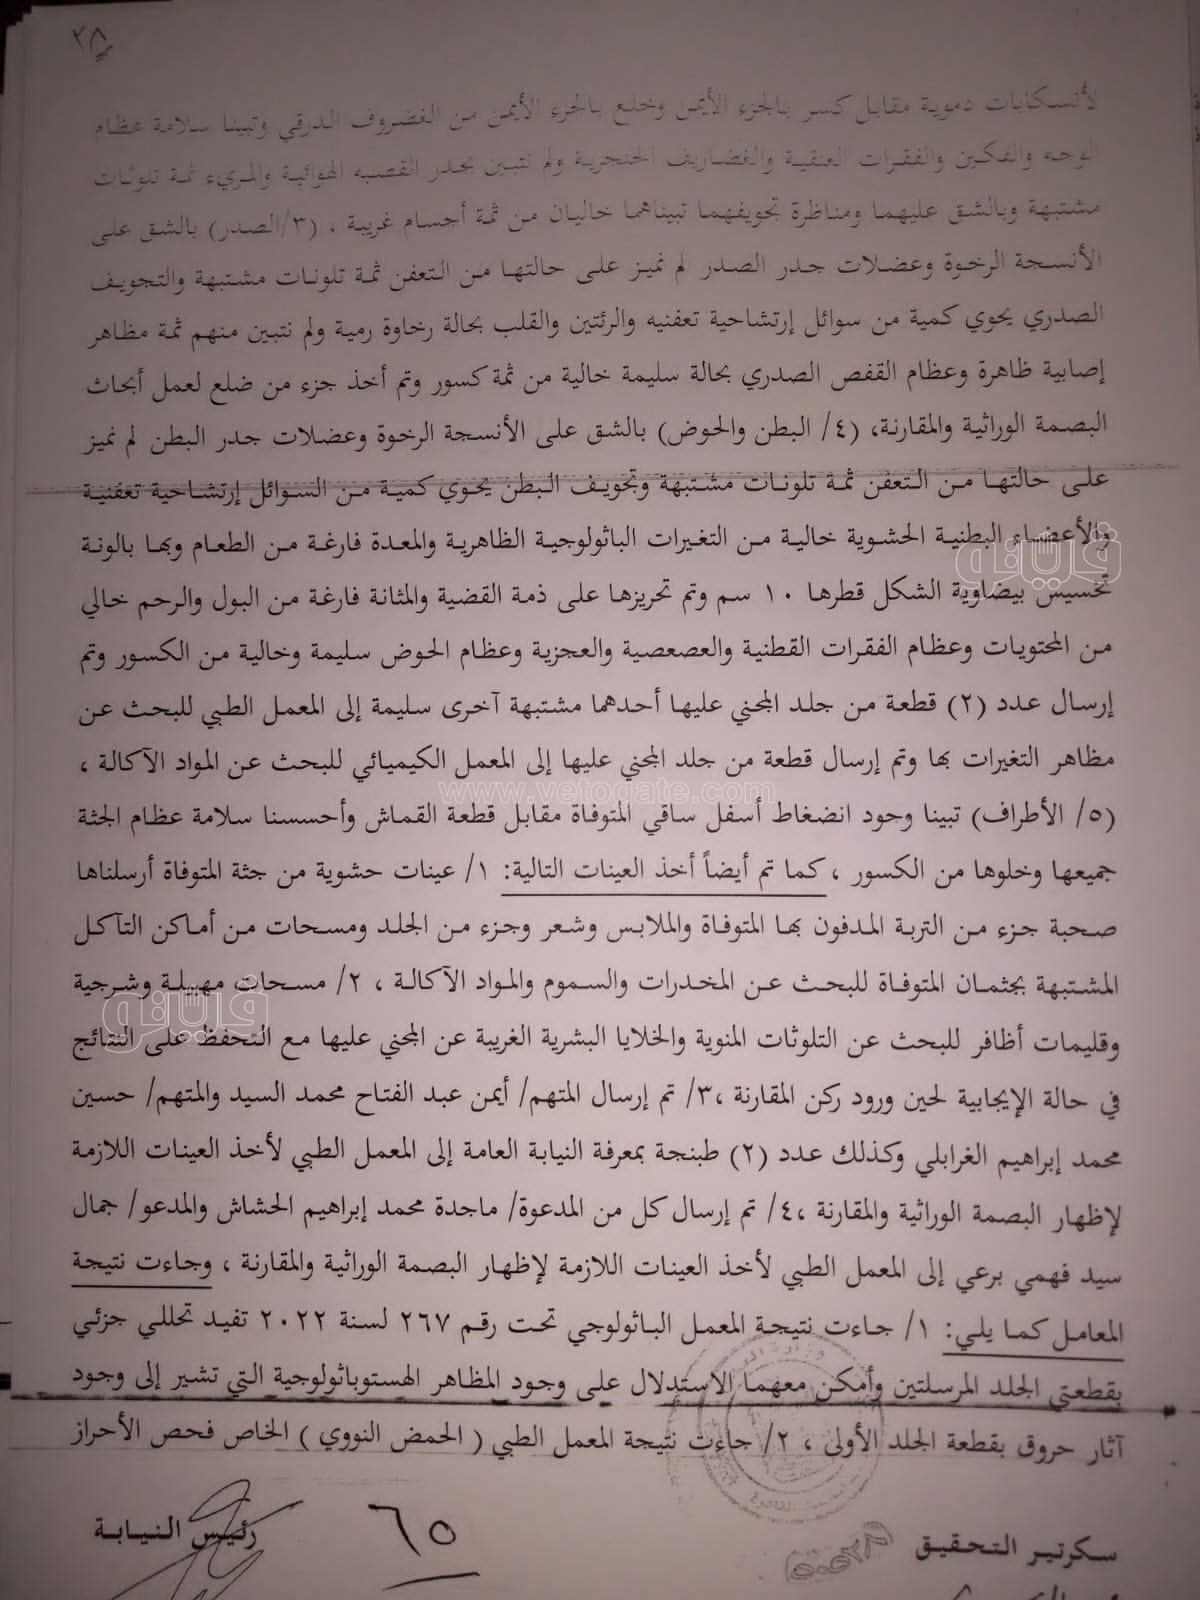 ٢٥
لأنسكابات دموية مقابل كسر بالجزء الأيمن وخلع بالجزء الأيمن من الغضروف الدرقي وتبينا سلامة عظام
الوجه والفكين والفقرات العنقية والغضاريف الحنجرية ولم نتبين بجدر القصبه الهوائية والمريء ثمة تلوثات
مشتبهة وبالشق عليهما ومناظرة تجويفهما تبيناهما خاليان من ثمة أجسام غريبة ، (٣/الصدر) بالشق على
الأنسجة الرخوة وعضلات جدر الصدر لم نميز على حالتها من التعفن ثمة تلونات مشتبهة والتجويف
الصدري يحوي كمية من سوائل إرتشاحية تعفنيه والرئتين والقلب بحالة رخاوة رمية ولم نتبين منهم ثمة مظاهر
إصابية ظاهرة وعظام القفص الصدري بحالة سليمة خالية من ثمة كسور وتم أخذ جزء من ضلع لعمل أبحاث
البصمة الوراثية والمقارنة، (٤/ البطن والحوض) بالشق على الأنسجة الرخوة وعضلات جدر البطن لم نميز
على حالتها من التعفن ثمة تلونات مشتبهة وتجويف البطن يحوي كمية من السوائل إرتشاحية تعفنية
والأعضاء البطنية الحشوية خالية من التغيرات الباثولوجية الظاهرية والمعدة فارغة من الطعام وبها بالونة
تخسيس بيضاوية الشكل قطرها ١٠ سم وتم تحريزها على ذمة القضية والمثانة فارغة من البول والرحم خالي
من المحتويات وعظام الفقرات القطنية والعصعصية والعجزية وعظام الحوض سليمة وخالية من الكسور وتم
إرسال عدد (٢) قطعة من جلد المجني عليها أحدهما مشتبهة آخرى سليمة إلى المعمل الطبي للبحث عن
مظاهر التغيرات بها وتم إرسال قطعة من جلد المجني عليها إلى المعمل الكيميائي للبحث عن المواد الآكالة ،
(٥/ الأطراف) تبينا وجود انضغاط أسفل ساقي المتوفاة مقابل قطعة القماش وأحسسنا سلامة عظام الجثة
جميعها وخلوها من الكسور ، كما تم أيضاً أخذ العينات التالية: ١/ عينات حشوية من جثة المتوفاة أرسلناها
صحبة جزء من التربة المدفون بها المتوفاة والملابس وشعر وجزء من الجلد ومسحات من أماكن التآكل
المشتبهة بجثمان المتوفاة للبحث عن المخدرات والسموم والمواد الآكالة ، ٢/ مسحات مهبلة وشرجية
وقليمات أظافر للبحث عن التلوثات المنوية والخلايا البشرية الغريبة عن المجني عليها مع التحفظ على النتائج
في حالة الإيجابية لحين ورود ركن المقارنة ،٣/ تم إرسال المتهم/ أيمن عبد الفتاح محمد السيد والمتهم/ حسين
محمد إبراهيم الغرابلي وكذلك عدد (٢) طبنجة بمعرفة النيابة العامة إلى المعمل الطبي لأخذ العينات اللازمة
لإظهار البصمة الوراثية والمقارنة ،٤/ تم إرسال كل من المدعوة/ ماجدة محمد إبراهيم الحشاش والمدعو/ جمال
سيد فهمي برعي إلى المعمل الطبي لأخذ العينات اللازمة لإظهار البصمة الوراثية والمقارنة ، وجاءت نتيجة
المعامل كما يلي: ١/ جاءت نتيجة المعمل الباثولوجي تحت رقم ٢٦٧ لسنة ٢٠٢٢ تفيد تحللي جزئي
بقطعتي الجلد المرسلتين وأمكن معهما الاستدلال على وجود المظاهر الهستوباثولوجية التي تشير إلى وجود
آثار حروق بقطعة الجلد الأولى ، ٢/ جاءت نتيجة المعمل الطبي ( الحمض النووي ) الخاص فحص الأحراز
سكرتير التحقيق
٦٥
رئيس النيابة
فيتو
www.vetogate.com
فيتو